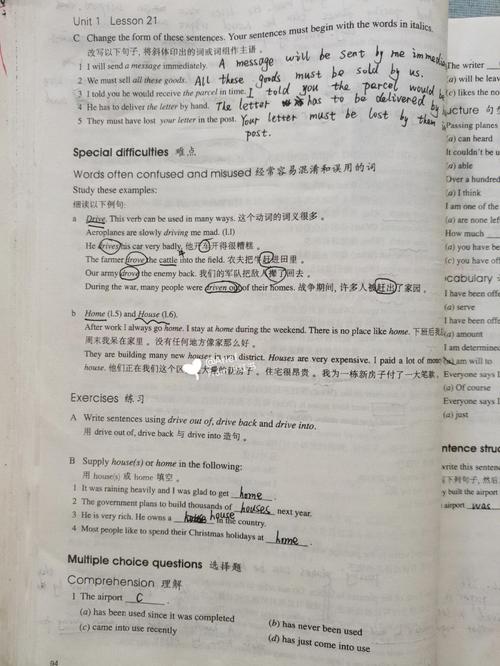 Unit 1 Lesson 21
C Change the form of these sentences. Your sentences must begin with the words in italics.
改写以下句子, 将斜体印出的词或词组作主语。
1 I will send a message immediately. A message will be sent by me
2 We must sell all these goods. All these goods must be sold by us.
3 I told you he would receive the parcel in time. I told you the parcel would be
4 He has to deliver the letter by hand. The letter has to be delivered by
5 They must have lost your letter in the post. Your letter must be lost by them
post.
Special difficulties 难点
Words often confused and misused 经常容易混淆和误用的词
Study these examples:
细读以下例句:
a Drive. This verb can be used in many ways. 这个动词的词义很多。
Aeroplanes are slowly driving me mad. (l.1)
He drives his car very badly. 他开车开得很糟糕。
The farmer drove the cattle into the field. 农夫把牛赶进田里。
Our army drove the enemy back. 我们的军队把敌人撵了回去。
During the war, many people were driven out of their homes. 战争期间, 许多人被赶出了家园。
b Home (l.5) and House (l.6).
After work I always go home. I stay at home during the weekend. There is no place like home. 下班后我
周末我呆在家里。没有任何地方像家那么好。
They are building many new houses in district. Houses are very expensive. I paid a lot of
house. 他们正在我们这个区 房子。住宅很昂贵。我为一栋新房子付了一大笔款。
Exercises 练习
A Write sentences using drive out of, drive back and drive into.
用 drive out of, drive back 与 drive into 造句。
B Supply house(s) or home in the following:
用 house(s) 或 home 填空。
1 It was raining heavily and I was glad to get home.
2 The government plans to build thousands of houses next year.
3 He is very rich. He owns a house in the country.
4 Most people like to spend their Christmas holidays at home.
Multiple choice questions 选择题
Comprehension 理解
1 The airport C.
(a) has been used since it was completed
(b) has never been used
(c) came into use recently
(d) has just come into use
94
The writer
(a) will be
(c) likes the
ucture 句
Passing planes
(a) can heard
It couldn't be
(a) able
Over a hundred
(a) I think
I am one of the
(a) are none
How much
(a) you have
(c) you have
ocabulary
I have been
(a) serve
I have been
(a) amount
I am determined
(a) am will to
Everyone says
(a) Of course
Everyone says
(a) just
ntence
write this
下列句子, 然后
y built the airport
airport was